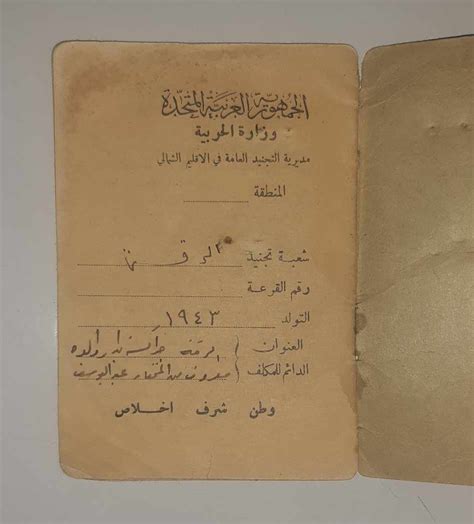 الجمهورية العربية المتحدة
وزارة الحربية
مديرية التجنيد العامة في الاقليم الشمالي
المنطقة
شعبة تجنيد الرقة
رقم القرعة
التولد ١٩٤٣
العنوان الرقة
الدائم للمكلف معروف من المختار
وطن شرف اخلاص